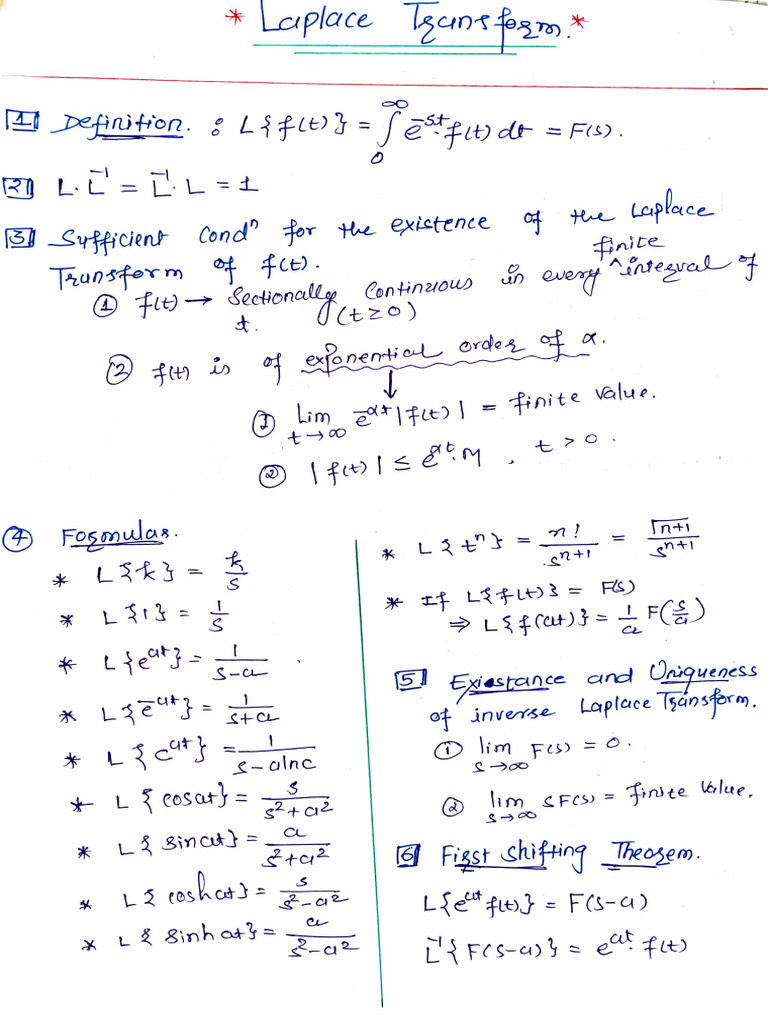 * Laplace Transform. *
1 Definition. : L{f(t)} = ∫₀^∞ e^-st. f(t) dt = F(s).
2 L. L^-1 = L^-1. L = 1
3 Sufficient Cond^n for the existence of the Laplace
Transform of f(t).
① f(t) → Sectionally Continuous in every ^finite interval of
t. (t ≥ 0)
② f(t) is of exponential order of α.
↓
① Lim t→∞ e^-αt |f(t)| = finite value.
② |f(t)| ≤ e^αt. M , t > 0.
④ Formulas.
* L{k} = k/s
* L{1} = 1/s
* L{e^at} = 1/(s-a) .
* L{e^-at} = 1/(s+a)
* L{c^at} = 1/(s-alnc)
* L{cosat} = s/(s²+a²)
* L{sinat} = a/(s²+a²)
* L{coshat} = s/(s²-a²)
* L{sinhat} = a/(s²-a²)
* L{t^n} = n!/s^n+1 = Γn+1/s^n+1
* If L{f(t)} = F(s)
⇒ L{f(at)} = 1/a F(s/a)
5 Exiestance and Uniqueness
of inverse Laplace Transform.
① lim s→∞ F(s) = 0.
② lim s→∞ sF(s) = finite value.
6 First Shifting Theorem.
L{e^at f(t)} = F(s-a)
L^-1{F(s-a)} = e^at. f(t)